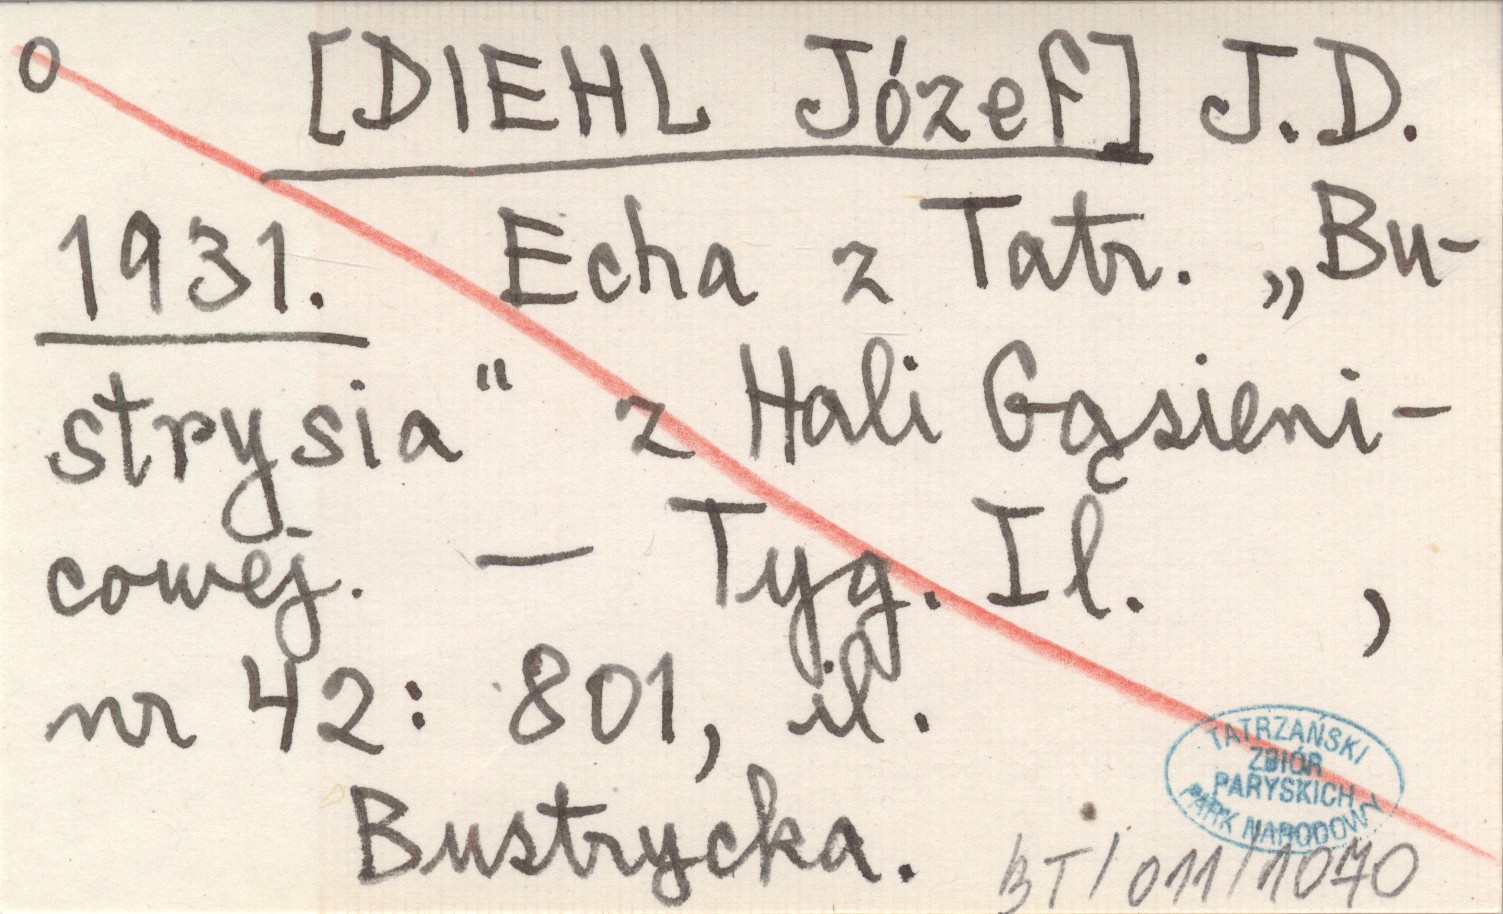 o [DIEHL Józef] J.D.
1931. Echa z Tatr. „Bu-
strysia" z Hali Gąsieni-
cowej. — Tyg. Il. ,
nr 42: 801, il.
Bustrycka.
TATRZAŃSKI
ZBIÓR
PARYSKICH
PARK NARODOWY
BT/011/1070